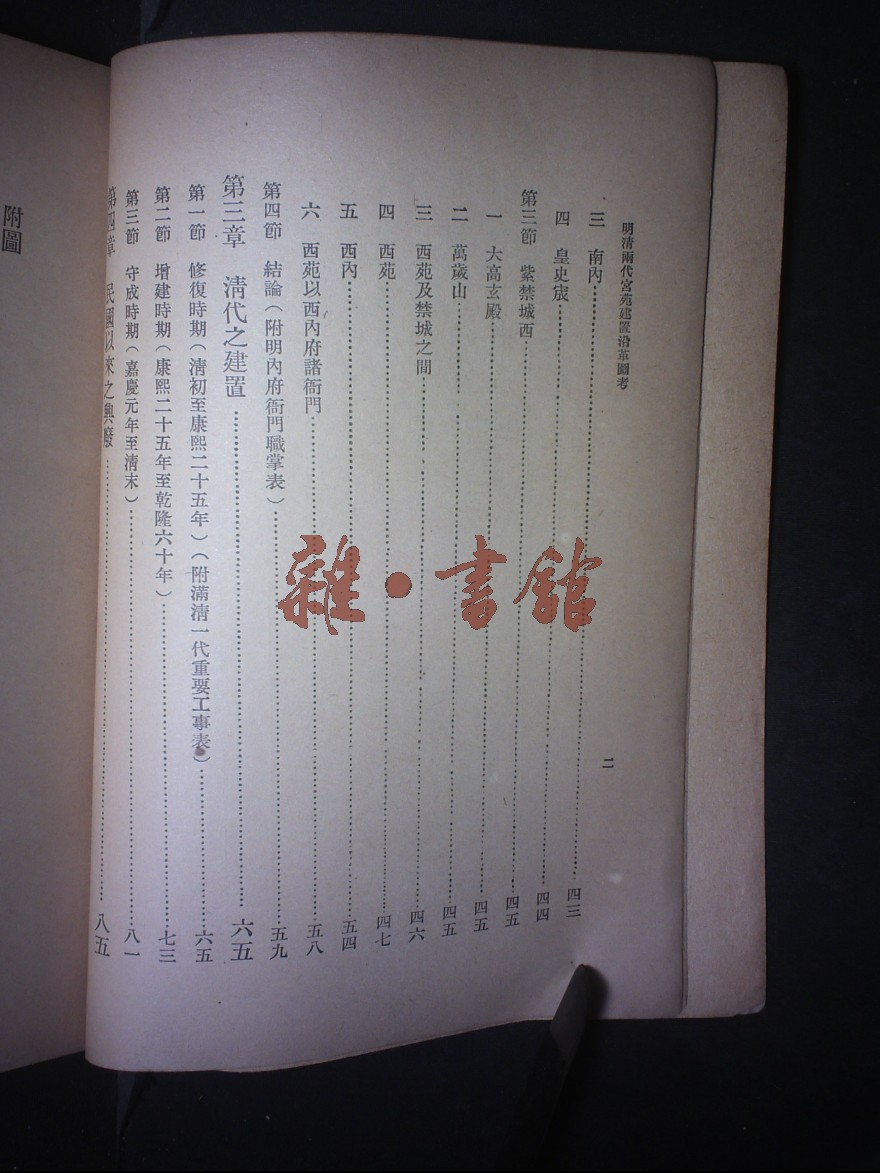 明清兩代宮苑建置沿革圖考
二
三 南內……四三
四 皇史宬……四四
第三節 紫禁城西……四五
一 大高玄殿……四五
二 萬歲山……四五
三 西苑及禁城之間……四六
四 西苑……四七
五 西內……五四
六 西苑以西內府諸衙門……五八
第四節 結論(附明內府衙門職掌表)……五九
第三章 淸代之建置……六五
第一節 修復時期(淸初至康熙二十五年)(附滿淸一代重要工事表)……六五
第二節 增建時期(康熙二十五年至乾隆六十年)……七三
第三節 守成時期(嘉慶元年至淸末)……八一
第四章 民國以來之興廢……八五
附圖
雜·書館